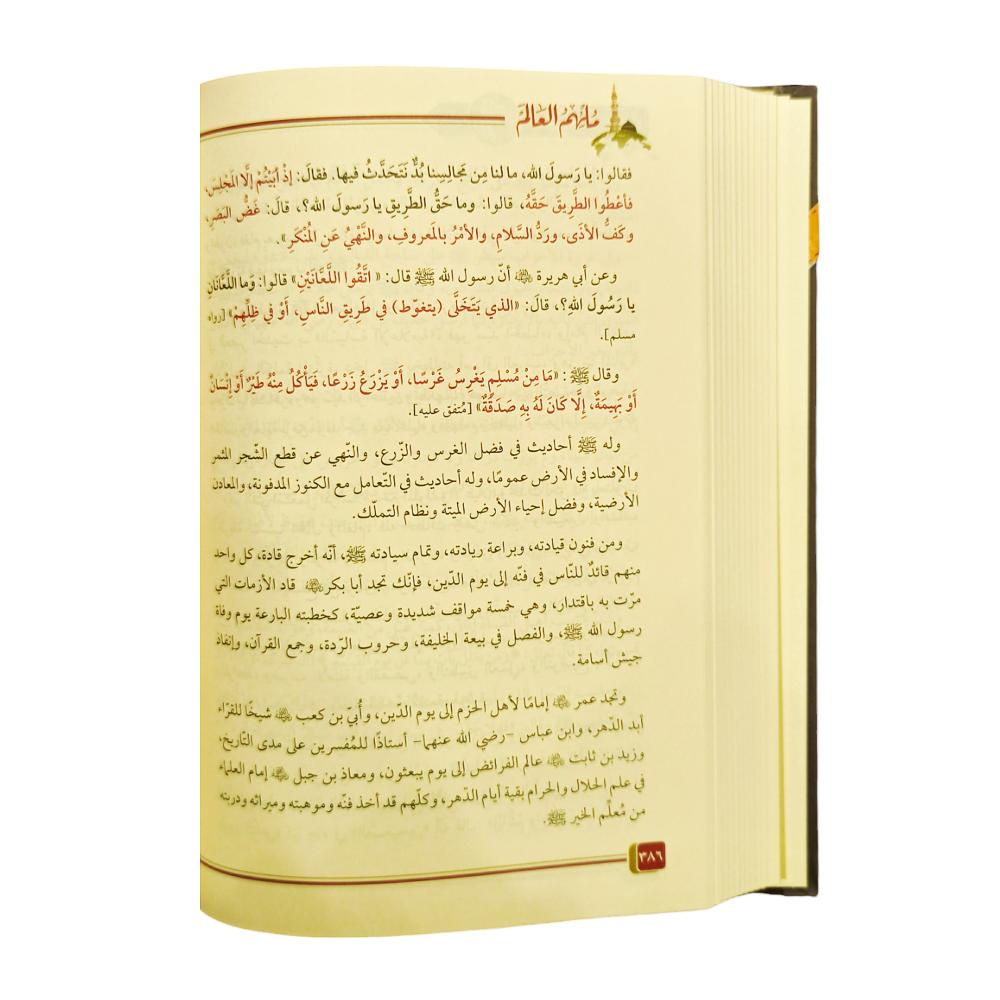 مُلْهِمُ العَالَم
فقالوا: يا رَسولَ الله، ما لنا مِن مَجالِسِنا بُدٌّ نَتَحَدَّثُ فيها. فقالَ: إذْ أبَيْتُمْ إلَّا المَجْلِسَ،
فأعْطُوا الطَّرِيقَ حَقَّهُ، قالوا: وما حَقُّ الطَّرِيقِ يا رَسولَ الله؟، قالَ: غَضُّ البَصَرِ،
وكَفُّ الأذَى، ورَدُّ السَّلامِ، والأمْرُ بالمَعروفِ، والنَّهْيُ عَنِ المُنْكَرِ».
وعن أبي هريرة ﵁ أنّ رسول الله ﷺ قال: «اتَّقُوا اللَّعَّانَيْنِ» قالوا: وَما اللَّعَّانَانِ
يا رَسُولَ الله؟، قالَ: «الذي يَتَخَلَّى (يتغوّط) في طَرِيقِ النَّاسِ، أَوْ في ظِلِّهِمْ» [رواه
مسلم].
وقال ﷺ: «مَا مِنْ مُسْلِمٍ يَغْرِسُ غَرْسًا، أَوْ يَزْرَعُ زَرْعًا، فَيَأْكُلُ مِنْهُ طَيْرٌ أَوْ إِنْسَانٌ
أَوْ بَهِيمَةٌ، إِلَّا كَانَ لَهُ بِهِ صَدَقَةٌ» [مُتفق عليه].
وله ﷺ أحاديث في فضل الغرس والزّرع، والنّهي عن قطع الشّجر المثمر
والإفساد في الأرض عمومًا، وله أحاديث في التّعامل مع الكنوز المدفونة، والمعادن
الأرضية، وفضل إحياء الأرض الميتة ونظام التملّك.
ومن فنون قيادته، وبراعة ريادته، وتمام سيادته ﷺ، أنّه أخرج قادة، كل واحد
منهم قائدٌ للنّاس في فنّه إلى يوم الدّين، فإنّك تجد أبا بكر ﵁ قاد الأزمات التي
مرّت به باقتدار، وهي خمسة مواقف شديدة وعصيّة، كخطبته البارعة يوم وفاة
رسول الله ﷺ، والفصل في بيعة الخليفة، وحروب الرّدة، وجمع القرآن، وإنفاذ
جيش أسامة.
وتجد عمر ﵁ إمامًا لأهل الحزم إلى يوم الدّين، وأُبيّ بن كعب ﵁ شيخًا للقرّاء
أبد الدّهر، وابن عباس -رضي الله عنهما- أستاذًا للمُفسرين على مدى التّاريخ،
وزيد بن ثابت ﵁ عالم الفرائض إلى يوم يبعثون، ومعاذ بن جبل ﵁ إمام العلماء
في علم الحلال والحرام بقية أيام الدّهر، وكلّهم قد أخذ فنّه وموهبته وميراثه ودربته
من مُعلّم الخير ﷺ.
٣٨٦